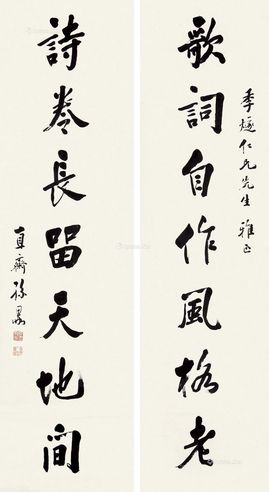 季燧仁兄先生 雅正
歌詞自作風格老
詩卷長留天地間
直齋孫